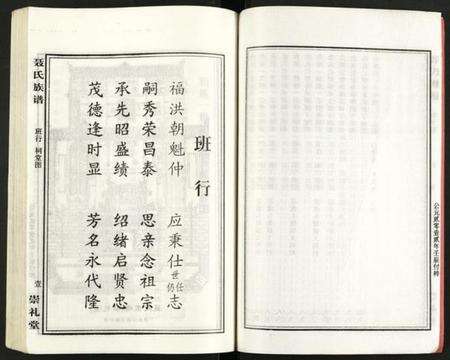 班行
福洪朝魁仲 应秉仕世任仍志
嗣秀荣昌泰 思亲念祖宗
承先昭盛绩 绍绪启贤忠
茂德逢时显 芳名永代隆
聂氏族谱
班行 祠堂图
壹
崇礼堂
公元贰零壹贰年壬辰付梓